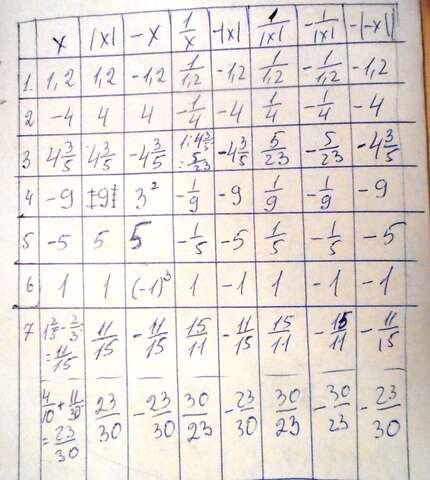 x |x| -x 1/x -|x| 1/|x| -1/|x| -|-x|
1. 1,2 1,2 -1,2 1/1,2 -1,2 1/1,2 -1/1,2 -1,2
2 -4 4 4 -1/4 -4 1/4 -1/4 -4
3 4 3/5 4 3/5 -4 3/5 1:4 3/5 = 5/23 -4 3/5 5/23 -5/23 -4 3/5
4 -9 |9| 3² -1/9 -9 1/9 -1/9 -9
5 -5 5 5 -1/5 -5 1/5 -1/5 -5
6 1 1 (-1)³ 1 -1 1 -1 -1
7 = 11/15 11/15 -11/15 15/11 -11/15 15/11 -15/11 -11/15
4/10 + 11/30 = 23/30 23/30 -23/30 30/23 -23/30 30/23 -30/23 -23/30